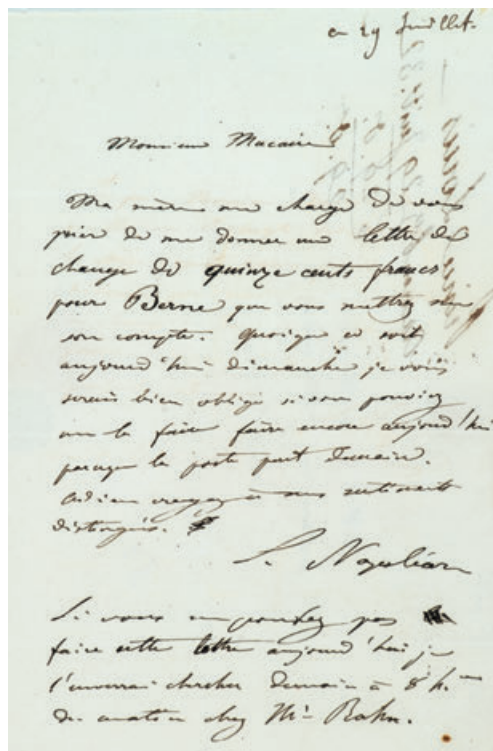 ce 29 Juillet.
Monsieur Macaire
Ma mère me charge de vous
prier de me donner une lettre de
change de quinze cents francs
pour Berne que vous mettrez sur
son compte. Quoique ce soit
aujourd'hui dimanche je vous
serais bien obligé si vous pouviez
me la faire faire encore aujourd'hui
parceque la poste part demain.
Adieu croyez à mes sentiments
distingués.
L. Napoléon
Si vous ne pouvez pas
faire cette lettre aujourd'hui je
l'enverrai chercher demain à 8 h.
du matin chez Mr